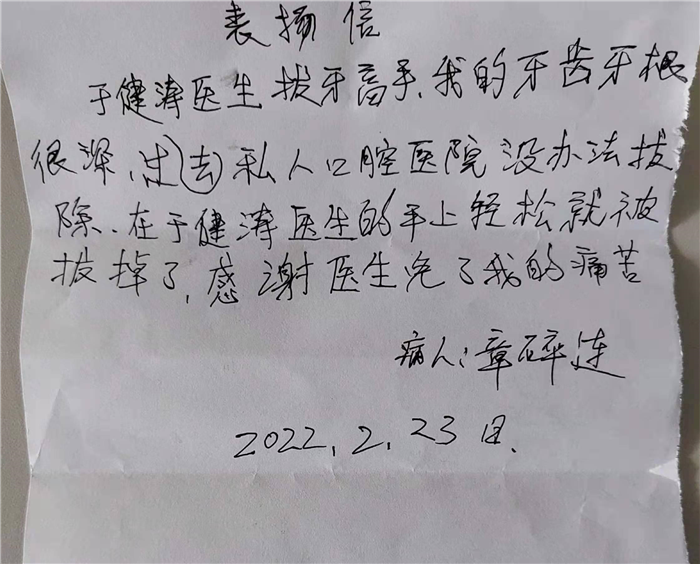 表扬信
于健涛医生拔牙高手、我的牙齿牙根
很深、出去私人口腔医院没办法拔
除、在于健涛医生的手上轻松就被
拔掉了，感谢医生免了我的痛苦
病人：章碎连
2022，2，23日、